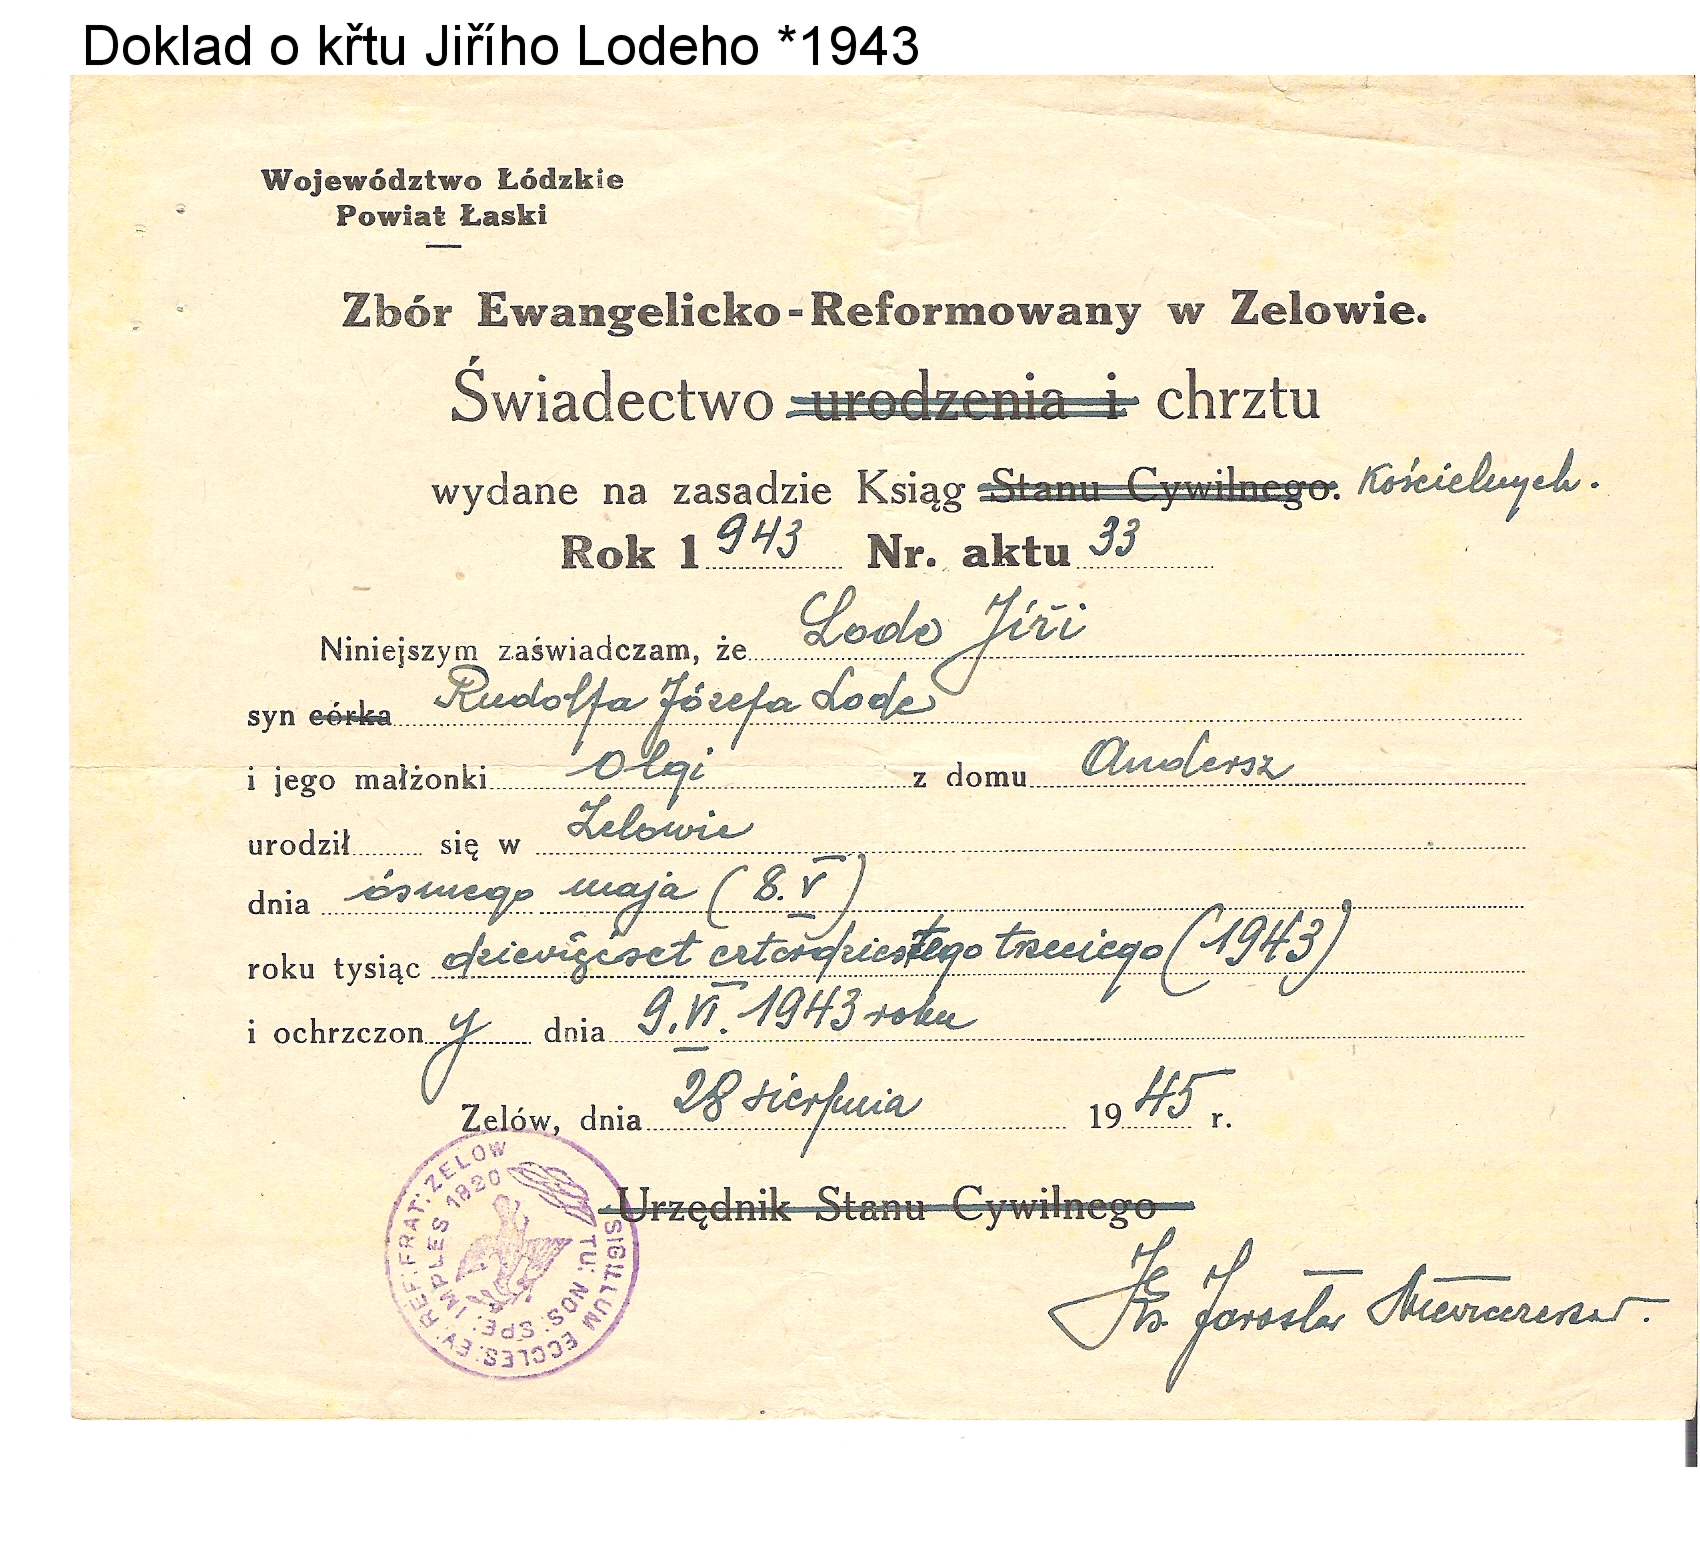 Doklad o křtu Jiřího Lodeho *1943
Województwo Łódzkie
Powiat Łaski
Zbór Ewangelicko-Reformowany w Zelowie.
Świadectwo urodzenia i chrztu
wydane na zasadzie Ksiąg Stanu Cywilnego. Kościelnych.
Rok 1943 Nr. aktu 33
Niniejszym zaświadczam, że Lode Jiři
syn córka Rudolfa Józefa Lode
i jego małżonki Olgi z domu Andersz
urodził się w Zelowie
dnia ósmego maja (8.V)
roku tysiąc dziewięćset czterdziestego trzeciego (1943)
i ochrzczony dnia 9.VI.1943 roku
Zelów, dnia 28 sierpnia 1945 r.
Urzędnik Stanu Cywilnego
SIGILLUM ECCLES: EV: REF: FRAT: ZELOW
TU: NOS: SPE: IMPLES 1820
Ks. Jarosław